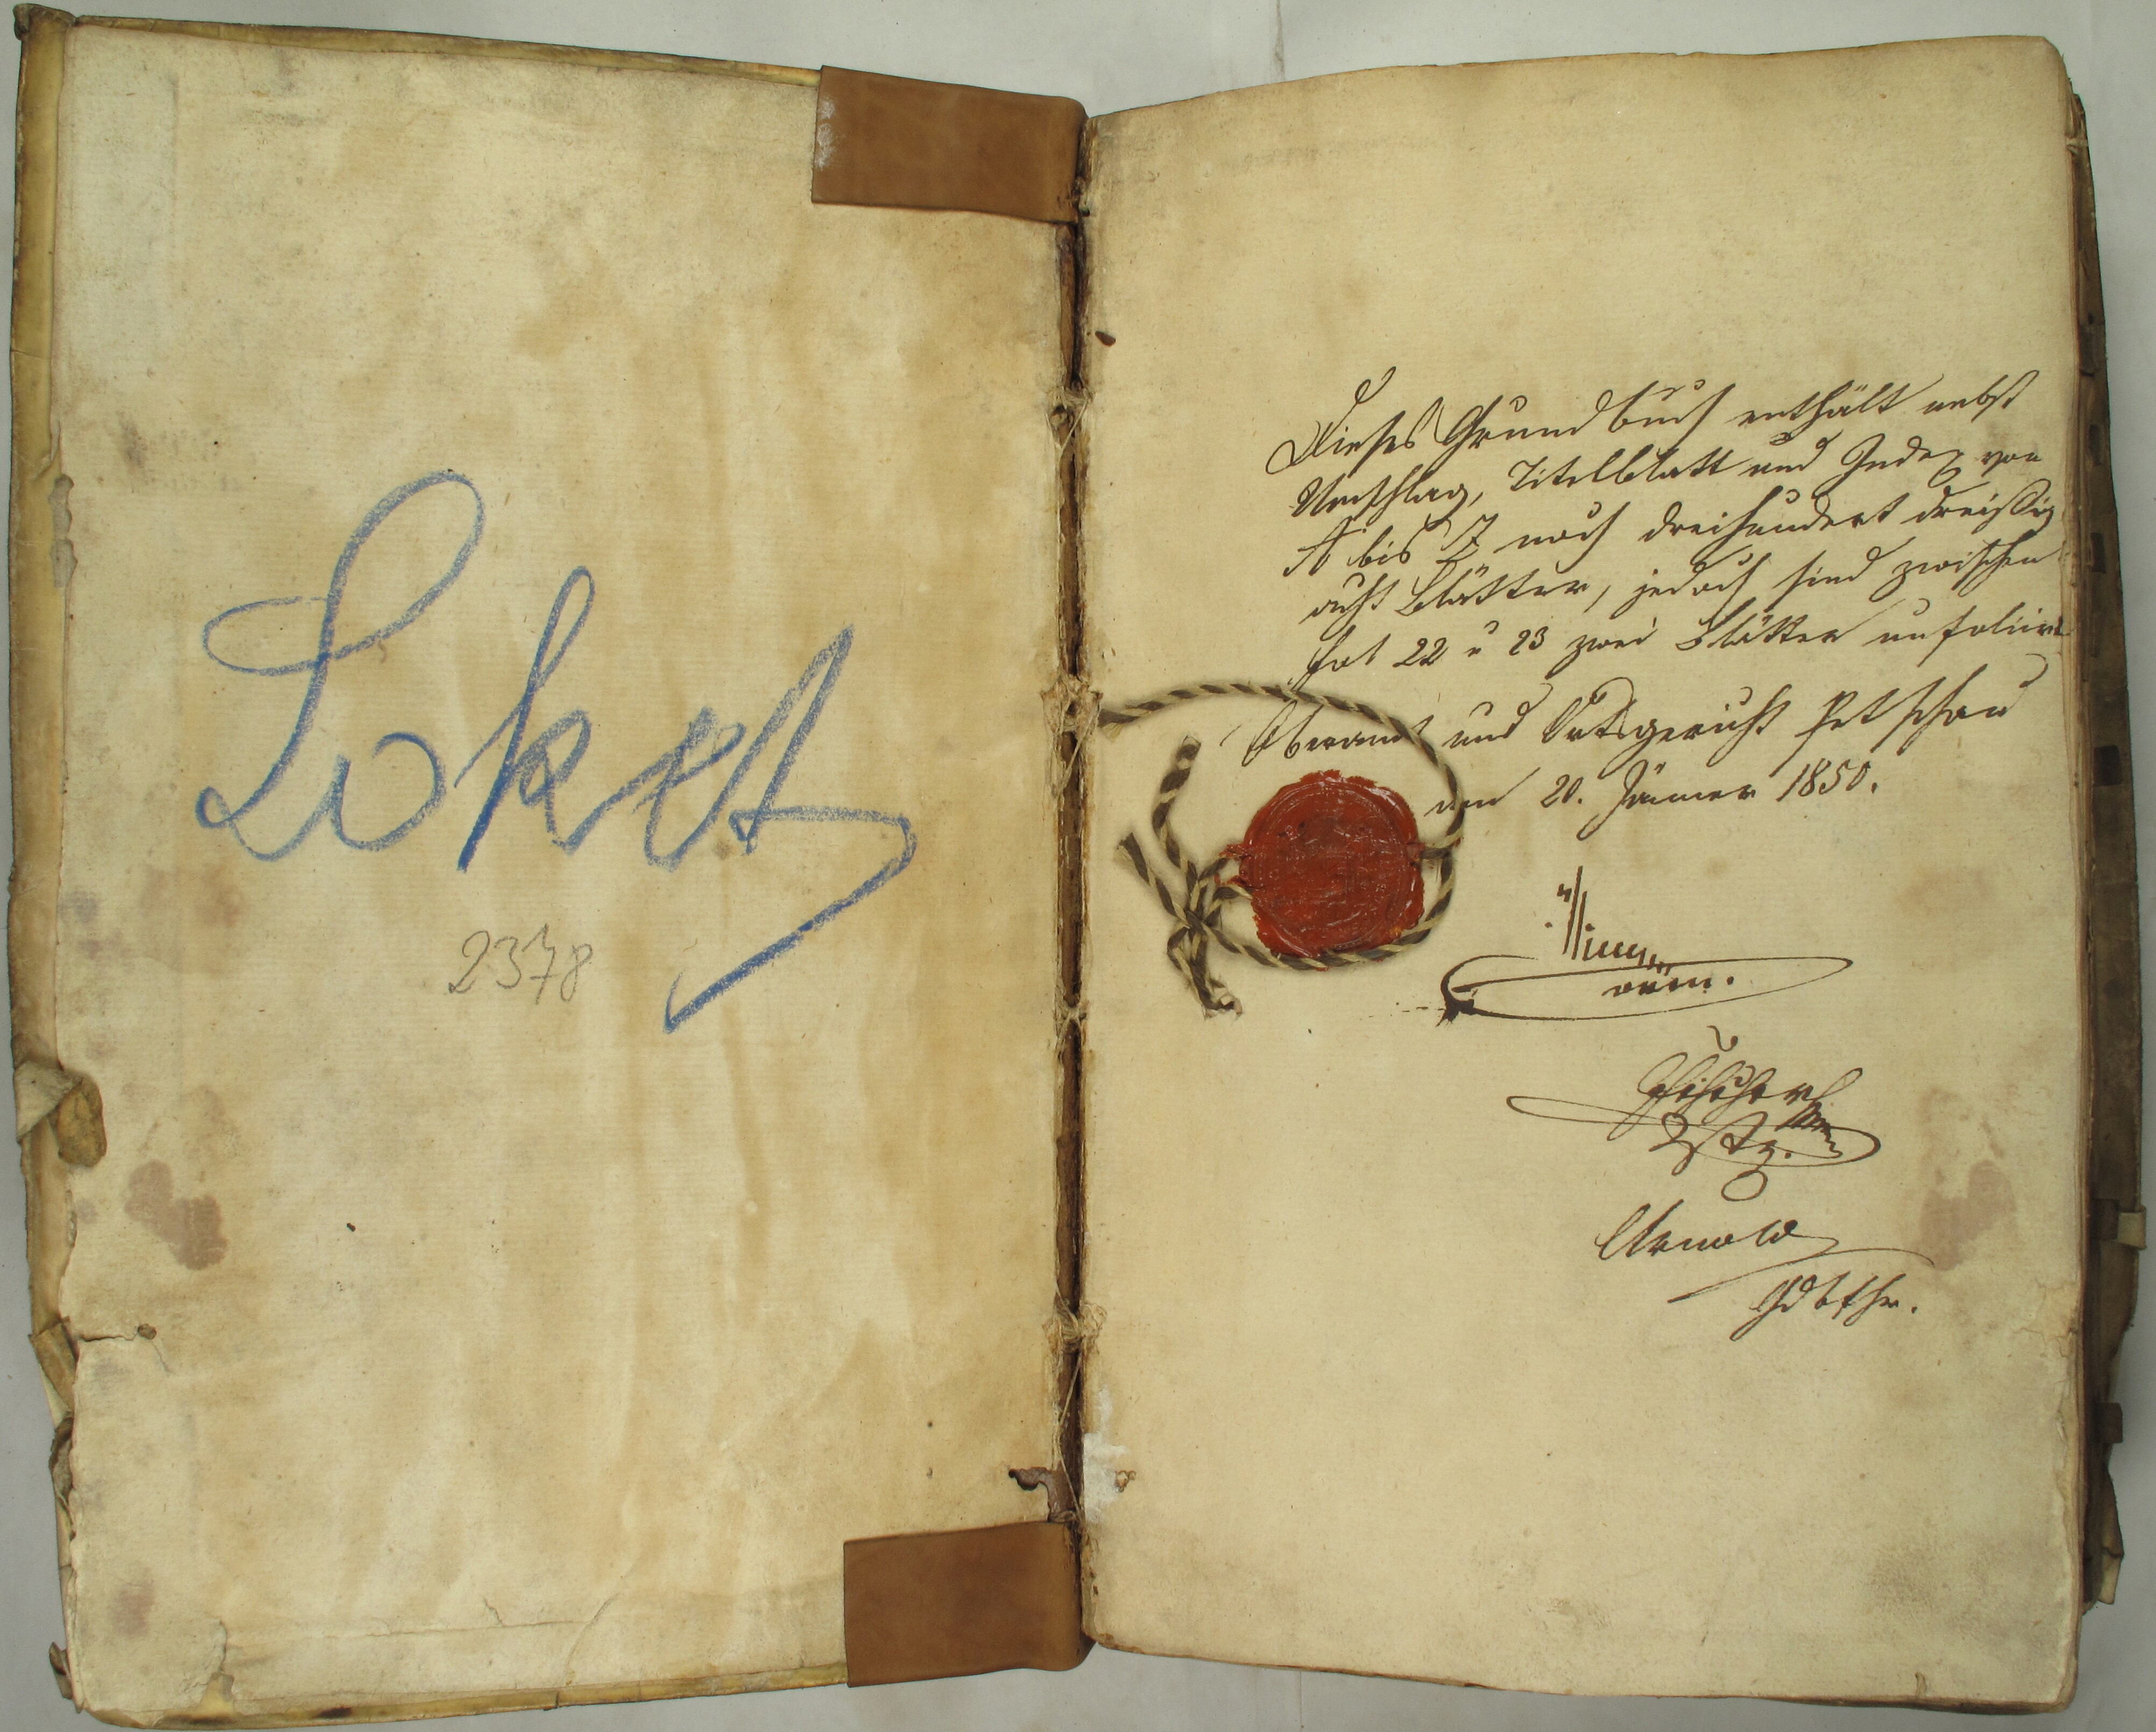 Loket
2378
Dieses Grundbuch enthält nebst
Umschlag, Titelblatt und Index von
A bis Z noch dreihundert dreißig
acht Blätter, jedoch sind zwischen
fol 22 u 23 zwei Blätter unfoliirt
Oberamt und Ortsgericht Petschau
am 20. Jänner 1850.
Arnold